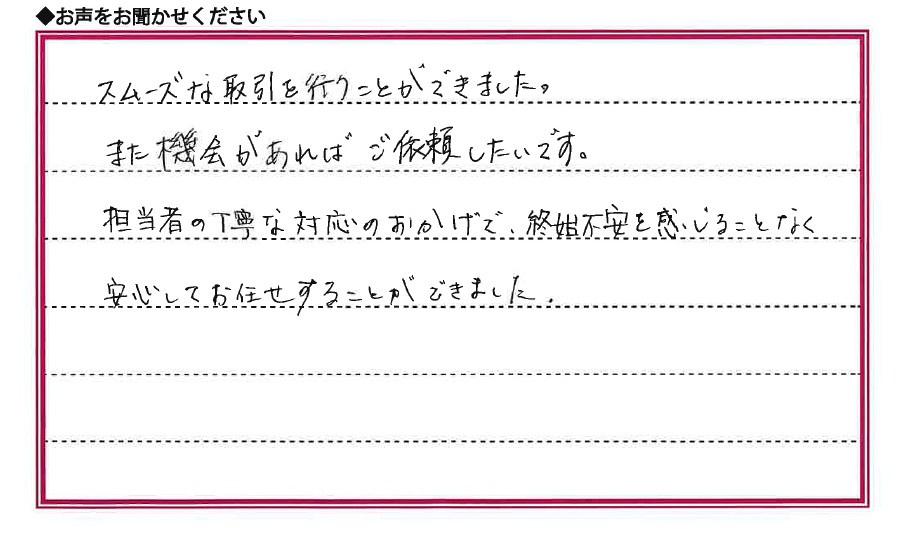 ◆お声をお聞かせください
スムーズな取引を行うことができました。
また機会があればご依頼したいです。
担当者の丁寧な対応のおかげで、終始不安を感じることなく
安心してお任せすることができました。